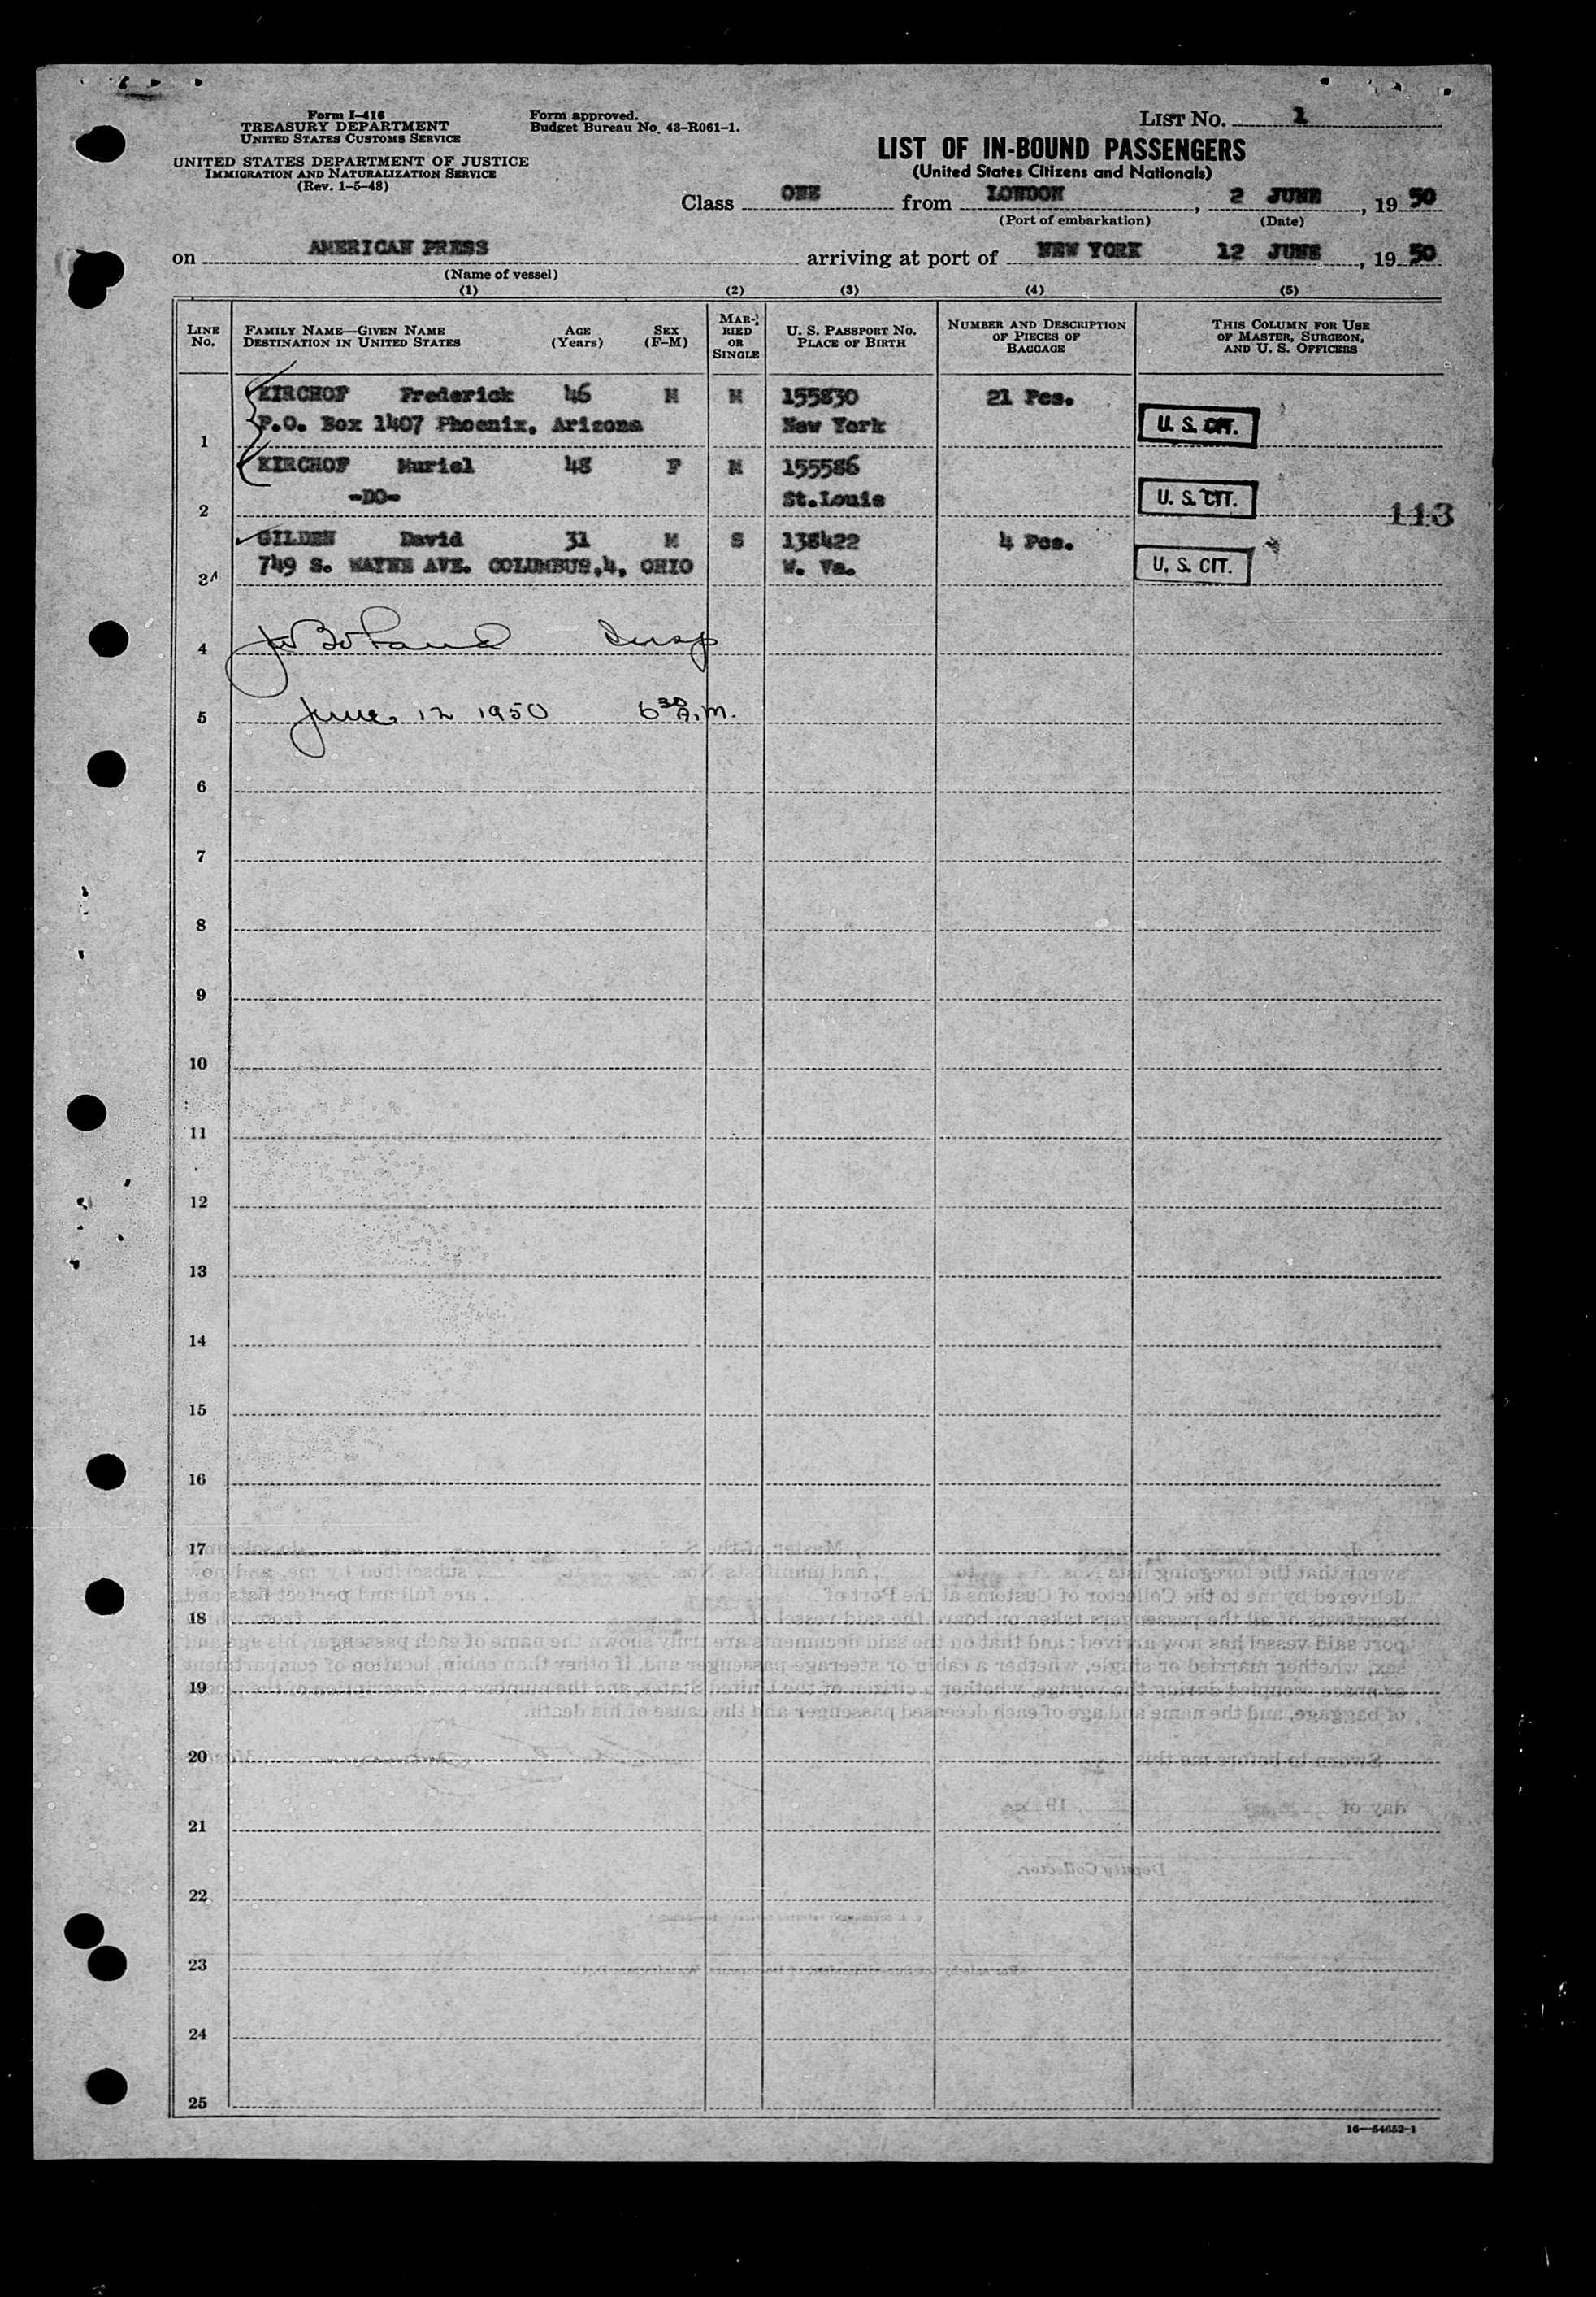 Form I-416
TREASURY DEPARTMENT
UNITED STATES CUSTOMS SERVICE
UNITED STATES DEPARTMENT OF JUSTICE
IMMIGRATION AND NATURALIZATION SERVICE
(Rev. 1-5-48)
Form approved.
Budget Bureau No. 43-R061-1.
LIST No. 1
LIST OF IN-BOUND PASSENGERS
(United States Citizens and Nationals)
Class ONE from LONDON, 2 JUNE, 19 50
(Port of embarkation) (Date)
on AMERICAN PRESS arriving at port of NEW YORK 12 JUNE, 19 50
(Name of vessel)
(1) (2) (3) (4) (5)
LINE No.
FAMILY NAME—GIVEN NAME
DESTINATION IN UNITED STATES
AGE (Years)
SEX (F-M)
MARRIED OR SINGLE
U. S. PASSPORT No.
PLACE OF BIRTH
NUMBER AND DESCRIPTION OF PIECES OF BAGGAGE
THIS COLUMN FOR USE OF MASTER, SURGEON, AND U. S. OFFICERS
KIRCHOF Frederick 46 M M 155830 21 Pcs.
1 P.O. Box 1407 Phoenix, Arizona New York U. S. CIT.
KIRCHOF Muriel 48 F M 155586
2 -DO- St.Louis U. S. CIT. 113
GILDEN David 31 M S 138422 4 Pcs.
3 749 S. WAYNE AVE. COLUMBUS,4, OHIO W. Va. U. S. CIT.
4 Insp
5 June 12 1950 6 30 A.M.
6
7
8
9
10
11
12
13
14
15
16
17
18
19
20
21
22
23
24
25
16—54652-1